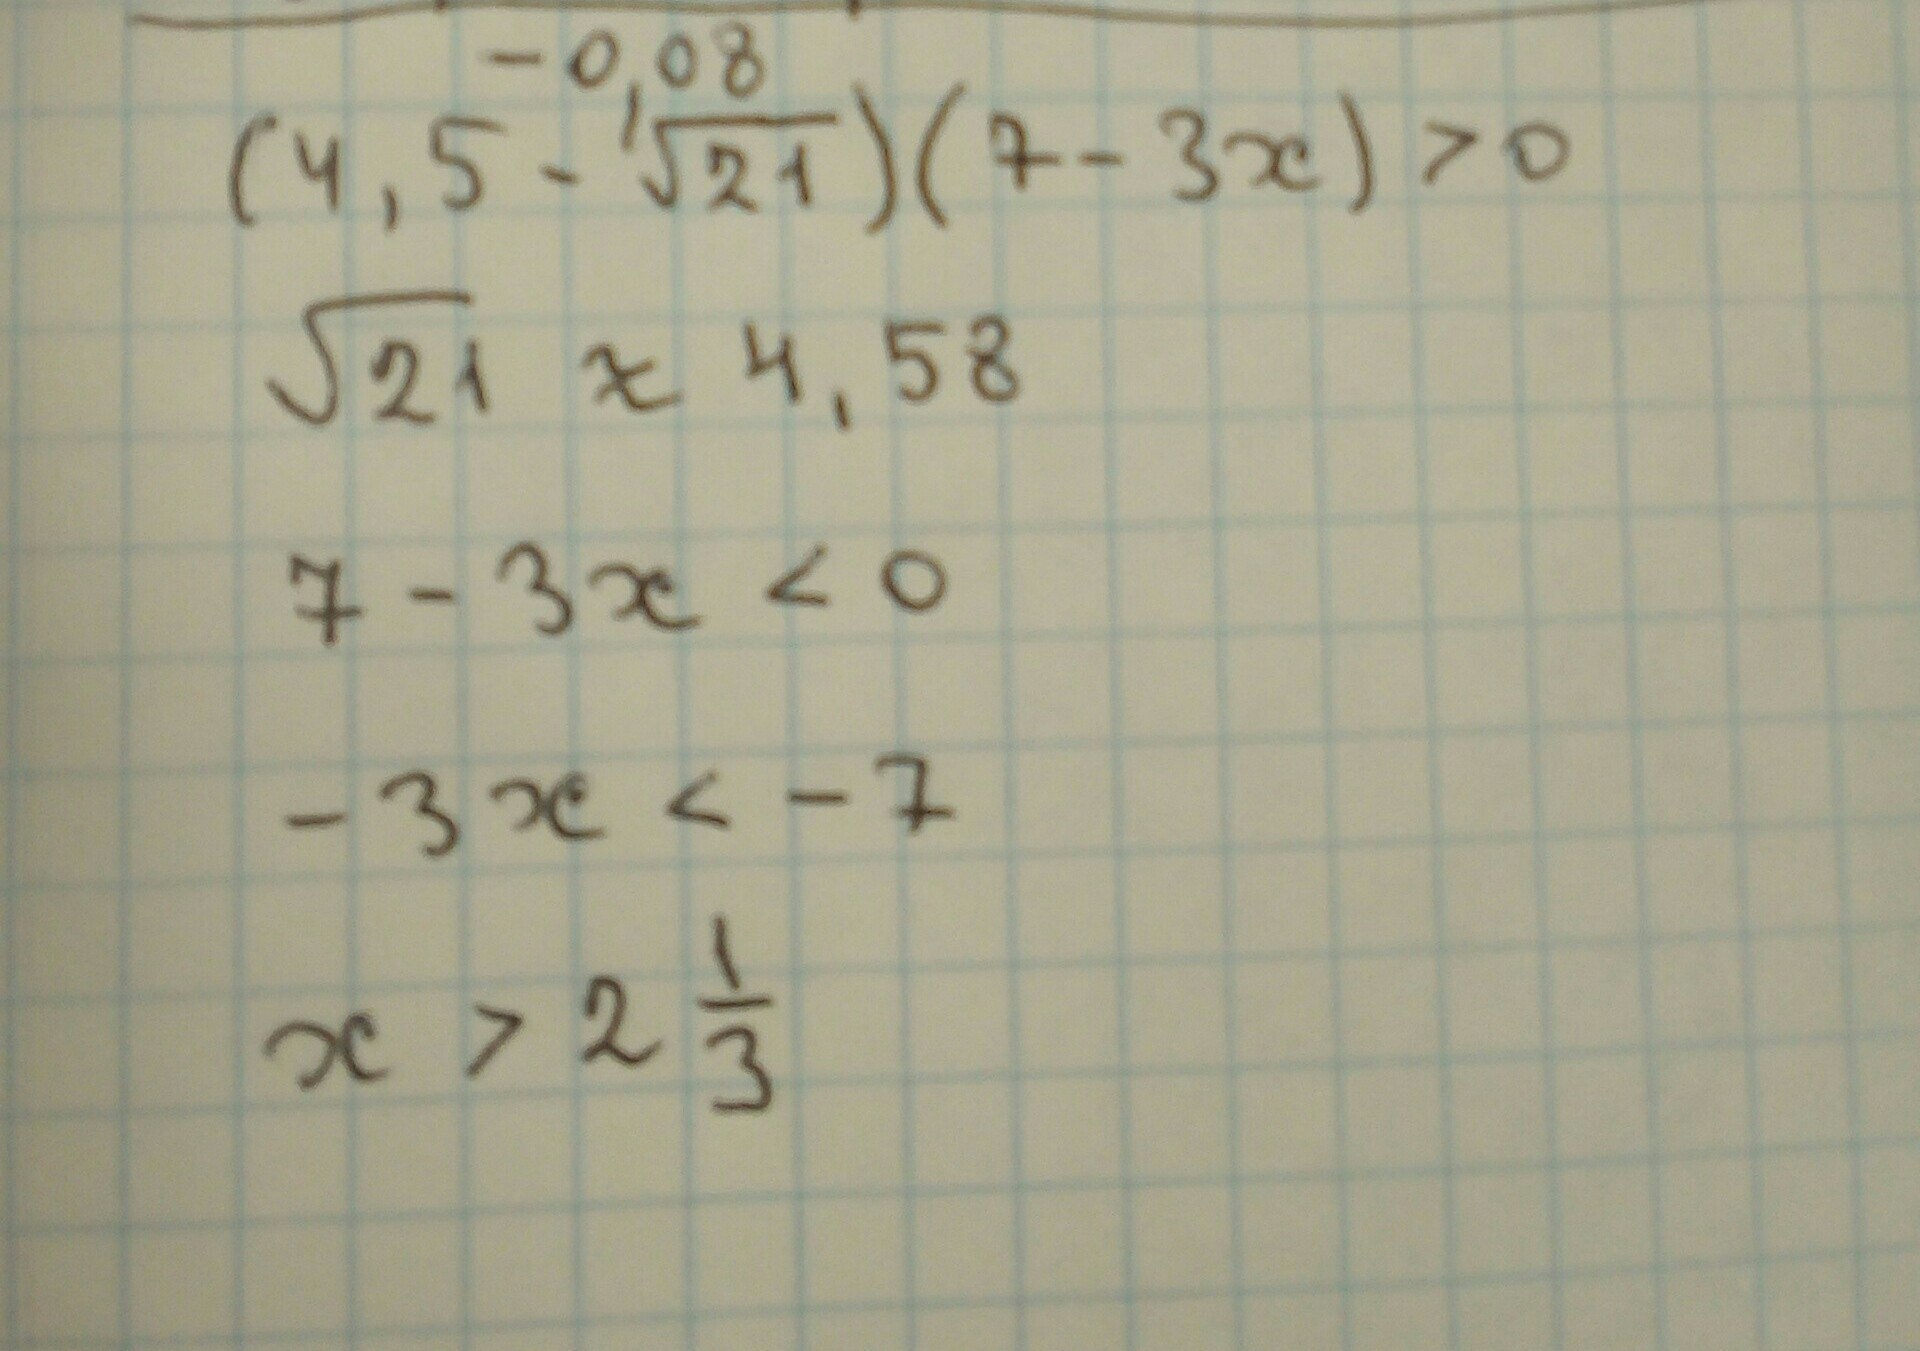 -0,08
(4,5-√21)(7-3x)>0
√21 ≈ 4,58
7-3x<0
-3x<-7
x>2 1/3